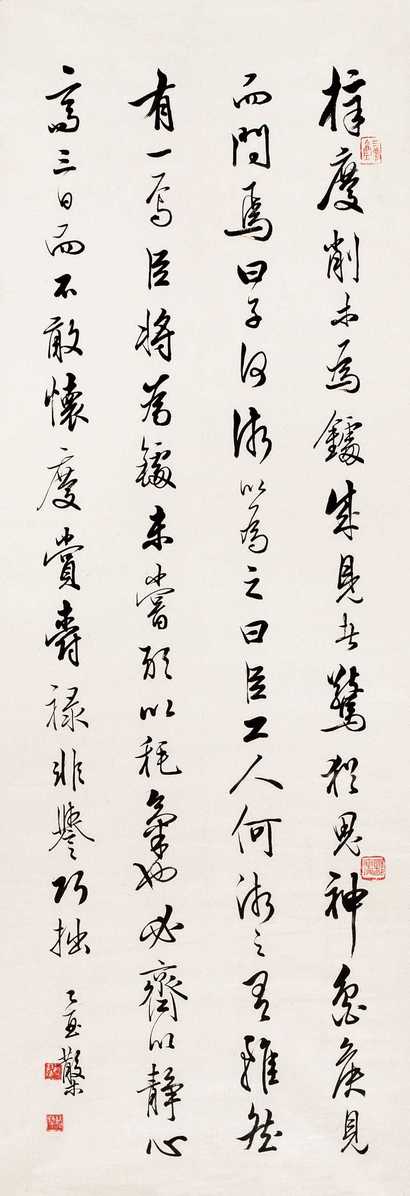 梓慶削木為鐻成見者驚猶鬼神魯侯見
而問焉曰子何術以為之曰臣工人何術之有雖然
有一焉臣將為鐻未嘗敢以耗氣也必齊以靜心
齊三日而不敢懷慶賞爵祿非譽巧拙
乙酉散木